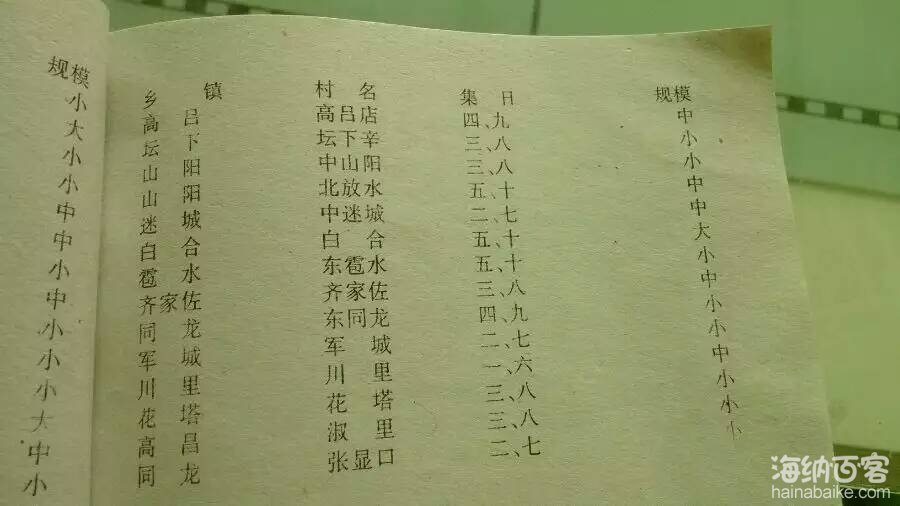 规模
小
大
小
小
中
中
小
中
小
小
小
大
中
小
乡 镇 村 名 集 日 规模
高 吕 高吕店 四、九 中
坛 下 坛下辛 三、八 小
山 阳 中山阳 三、八 小
山 阳 北放水 五、十 中
迷 城 中迷城 二、七 中
白 合 白 合 五、十 大
雹 水 东雹水 五、十 小
齐家佐 齐家佐 三、八 中
同 龙 东同龙 四、九 小
军 城 军 城 二、七 小
川 里 川 里 一、六 中
花 塔 花 塔 三、八 小
高 昌 淑 里 三、八 小
同 龙 张显口 二、七 小
海纳百客
hainabaike.com